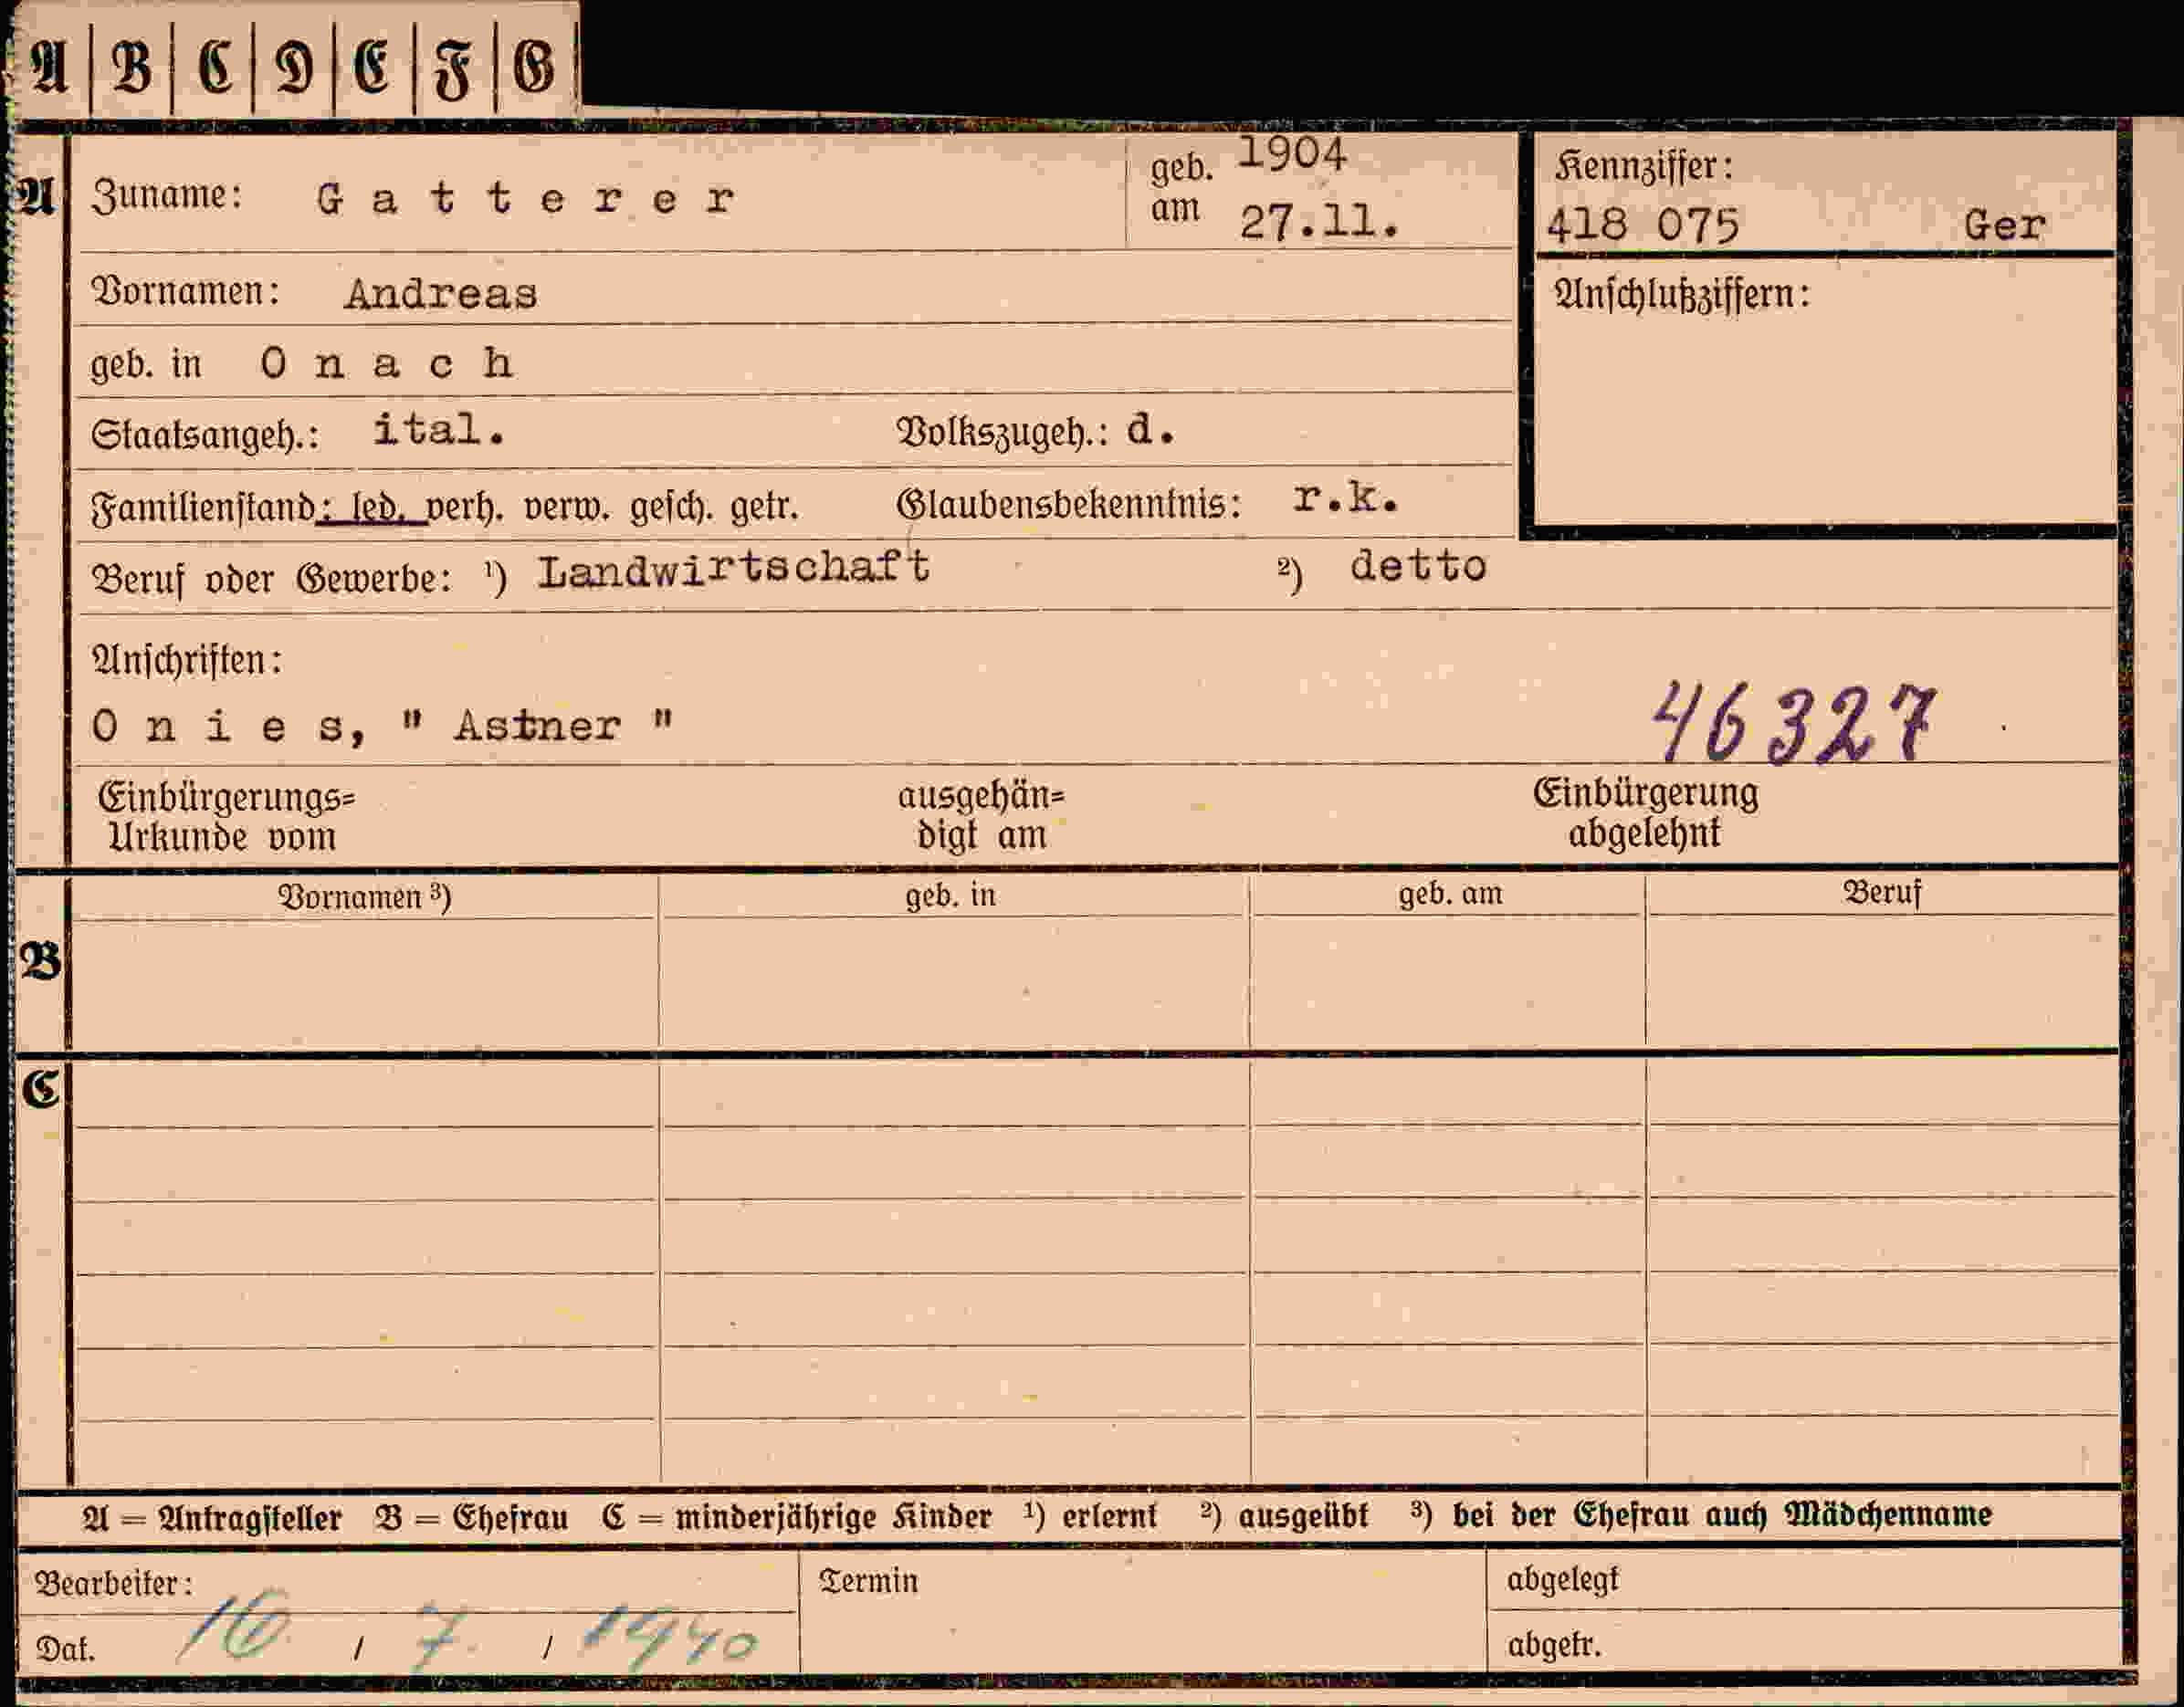 A | B | C | D | E | F | G
A Zuname: Gatterer geb. am 1904 27.11.
Kennziffer:
418 075 Ger
Vornamen: Andreas
Anschlußziffern:
geb. in Onach
Staatsangeh.: ital. Volkszugeh.: d.
Familienstand: led. verh. verw. gesch. getr. Glaubensbekenntnis: r.k.
Beruf oder Gewerbe: ¹) Landwirtschaft ²) detto
Anschriften:
Onies, " Astner " 46327
Einbürgerungs= ausgehän= Einbürgerung
Urkunde vom digt am abgelehnt
Vornamen ³) geb. in geb. am Beruf
B
C
A = Antragsteller B = Ehefrau C = minderjährige Kinder ¹) erlernt ²) ausgeübt ³) bei der Ehefrau auch Mädchenname
Bearbeiter: Termin abgelegt
Dat. 16 / 7 / 1940 abgetr.